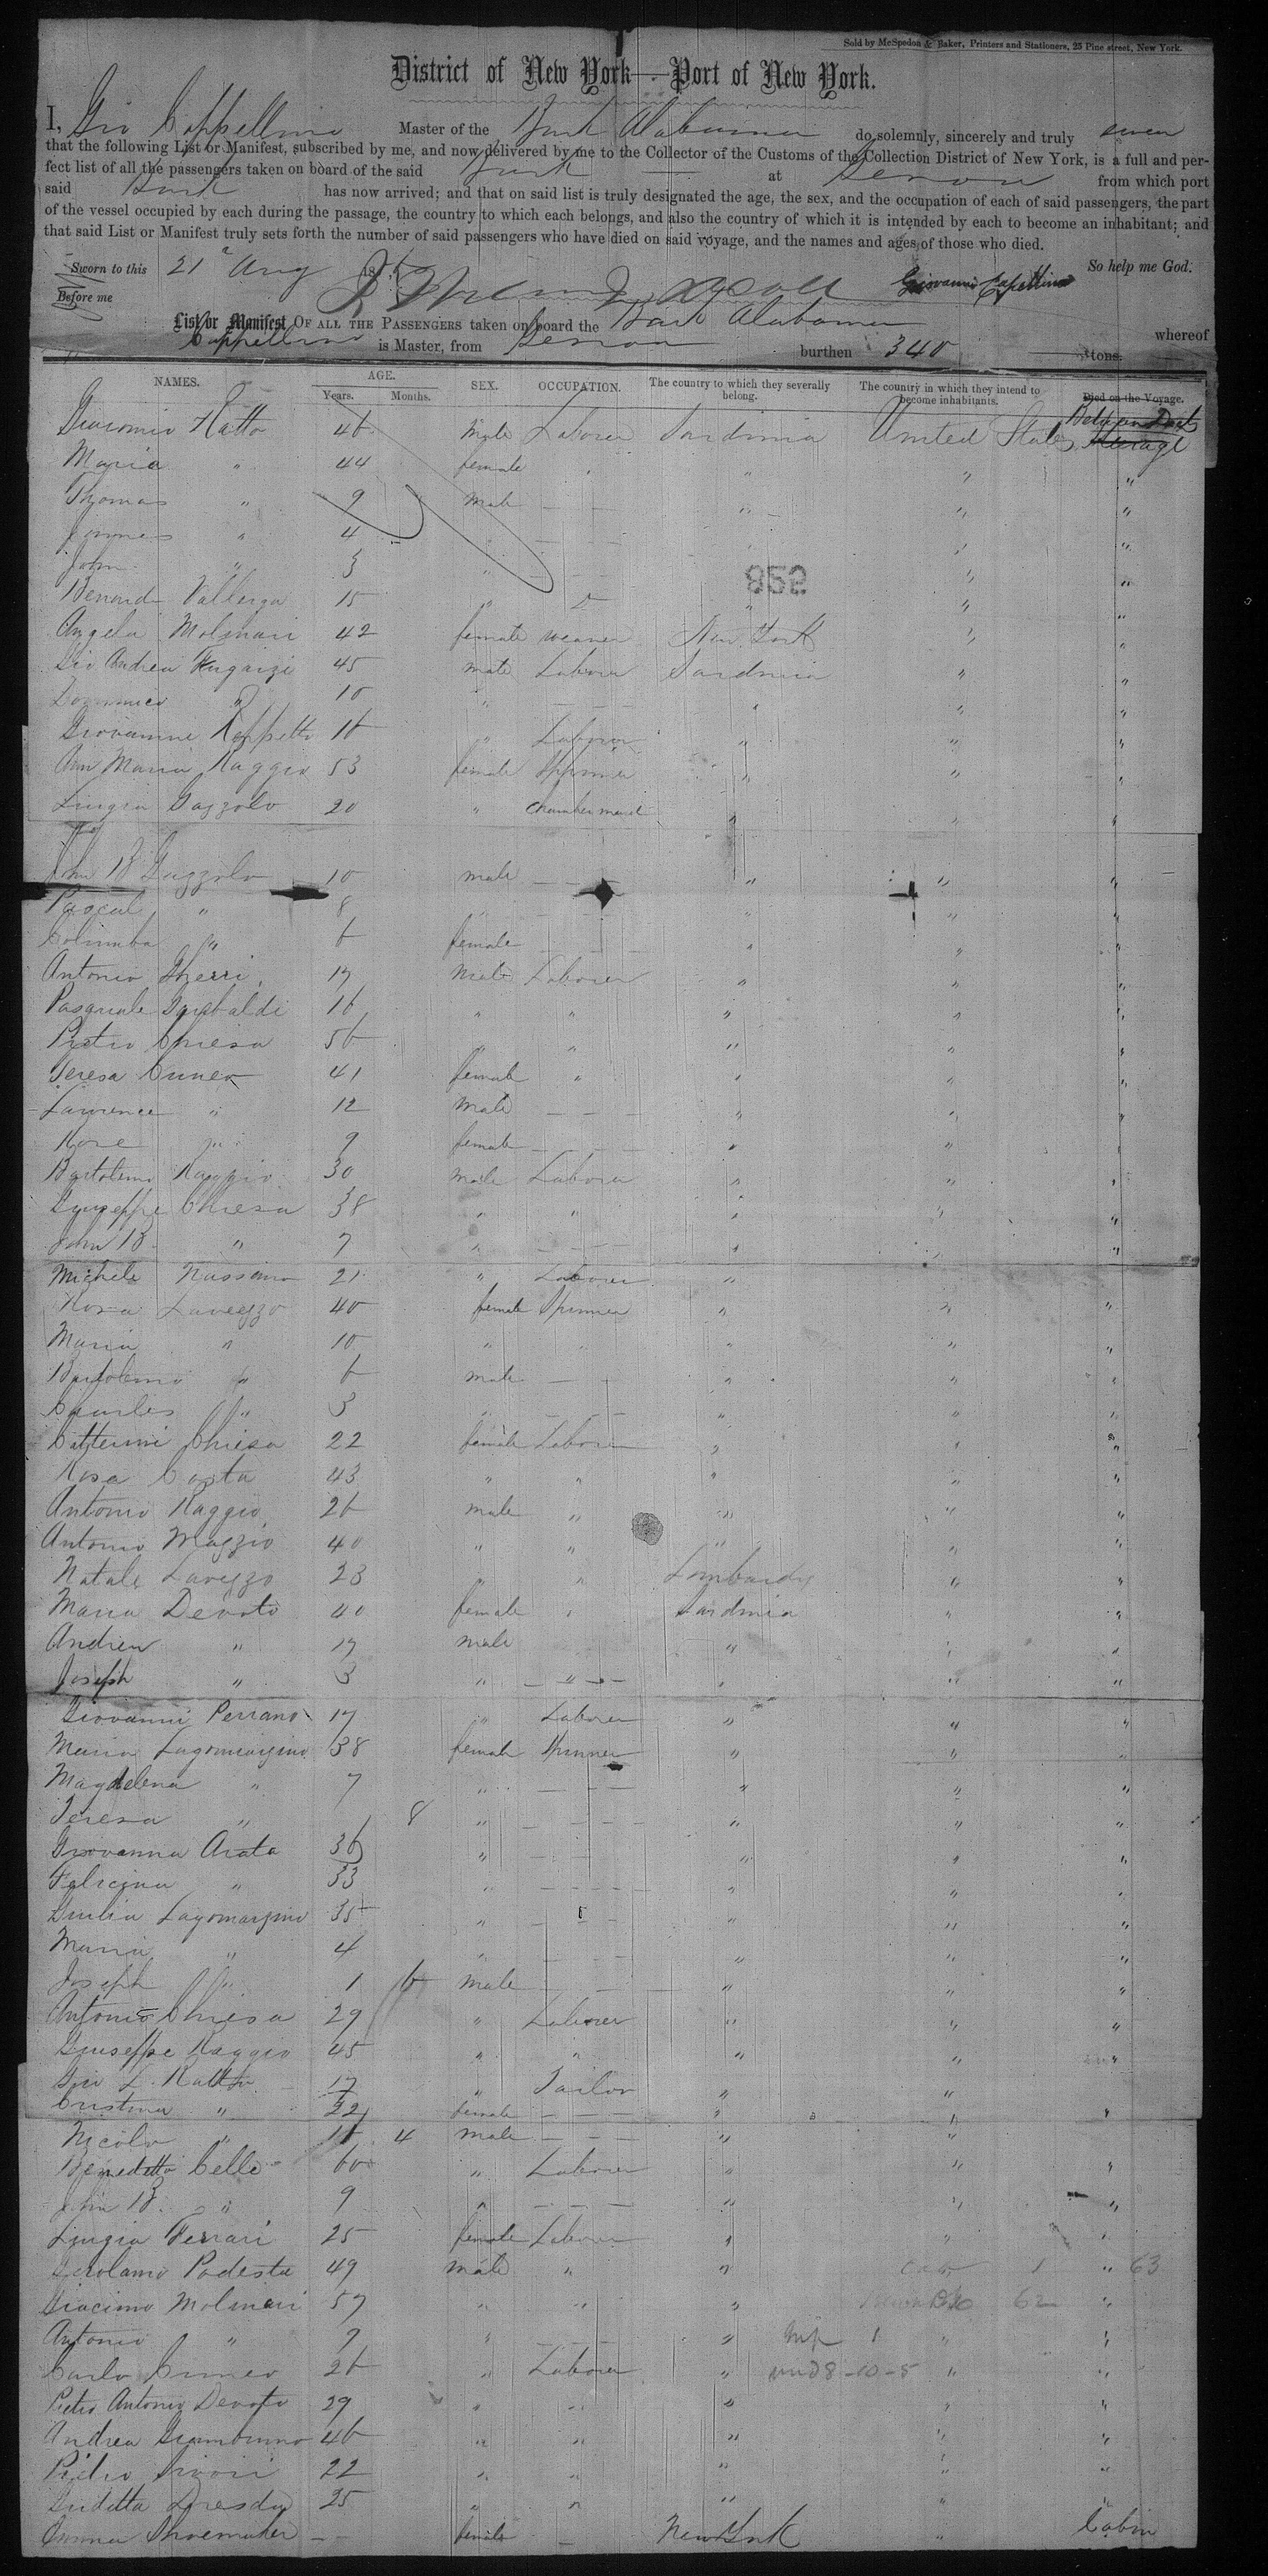 Sold by McSpedon & Baker, Printers and Stationers, 25 Pine street, New York.
District of New York—Port of New York.
I, Gio Cappellino Master of the Bark Alabama do solemnly, sincerely and truly swear
that the following List or Manifest, subscribed by me, and now delivered by me to the Collector of the Customs of the Collection District of New York, is a full and per-
fect list of all the passengers taken on board of the said Bark at Genoa from which port
said Bark has now arrived; and that on said list is truly designated the age, the sex, and the occupation of each of said passengers, the part
of the vessel occupied by each during the passage, the country to which each belongs, and also the country of which it is intended by each to become an inhabitant; and
that said List or Manifest truly sets forth the number of said passengers who have died on said voyage, and the names and ages of those who died.
Sworn to this 21 Aug 185 So help me God.
Before me Giovanni Capellino
List or Manifest OF ALL THE PASSENGERS taken on board the Bark Alabama whereof
Cappellino is Master, from Genoa burthen 340 tons.
NAMES. AGE. Years. Months. SEX. OCCUPATION. The country to which they severally belong. The country in which they intend to become inhabitants. Died on the Voyage.
Giacomo Ratto 46 Male Laborer Sardinia United States Steerage
Maria " 44 female " " "
Thomas " 9 Male — — " " "
James " 4 " — — " " "
John " 3 " — — — " "
895
Bernard Vallerga 15 " " " "
Angela Molinari 42 female weaver New York " "
Gio Andrea 45 male Laborer Sardinia " "
Domenico " 10 " — — — " " "
Giovanni 16 " Laborer " " "
Ann Maria Raggio 53 female Spinner " " "
Luigia Gazzolo 20 " Chambermaid " " "
John B Gazzolo 10 male — — " " "
Pascal " 8 " — — " " "
Columba " 6 female — — " " "
Antonio Gherri 17 Male Laborer " " "
Pasquale Garibaldi 16 " " " " "
Pietro Chiesa 56 " " " " "
Teresa Cuneo 41 female " " " "
Lawrence " 12 Male — — — " " "
Rose " 9 female — — — " " "
Bartolemo Raggio 30 male Laborer " " "
Giuseppe Chiesa 38 " " " " "
John B. " 7 " — — — " " "
Michele 21 " Laborer " "
Rosa Lavezzo 40 female Spinner " " "
Maria " 10 " " " " "
Bartolemo " 6 male — — " " "
Charles " 3 " — — — " " "
Catterini Chiesa 22 female Laborer " " "
Rosa Costa 43 " " " " "
Antonio Raggio 26 male " " " "
Antonio Maggio 40 " " " " "
Natale Lavezzo 23 " " Lombardy " "
Maria Devoto 40 female " Sardinia " "
Andrew " 17 male " " "
Joseph " 3 " — " — " " "
Giovanni Perrano 17 " Laborer " " "
Maria Lagomarsino 38 female Spinner " " "
Magdelena " 7 " — — — " " "
Teresa " 8 " — — — " " "
Giovanna Arata 36 " — — — " " "
Felicina " 33 " — — — " " "
Giulia Lagomarsino 35 " — — — " " "
Maria " 4 " — — — " " "
Joseph " 1 6 male — — — " " "
Antonio Chiesa 29 " Laborer " " "
Giuseppe Raggio 45 " " " " "
Gio L. Ratto 17 " Tailor " "
Cristina " 22 female — — — " " "
Nicolo " 4 male — — — " "
Benedetto Celle 60 " Laborer " " "
John B. " 9 " — — — " " "
Luigia Ferrari 25 female Laborer " " "
Gerolamo Podesta 49 male " " Cab 1 " 63
Giacimo Molinari 57 " " " 62 "
Antonio " 7 " — — — " 1 " "
Carlo Cuneo 26 " Laborer " 8-10-5 " "
Pietro Antonio Devoto 29 " " " " "
Andrea 46 " " " " "
Pietro 22 " " " " "
Giuditta 25 " " " " "
Emma Shoemaker — — female — New York " Cabin